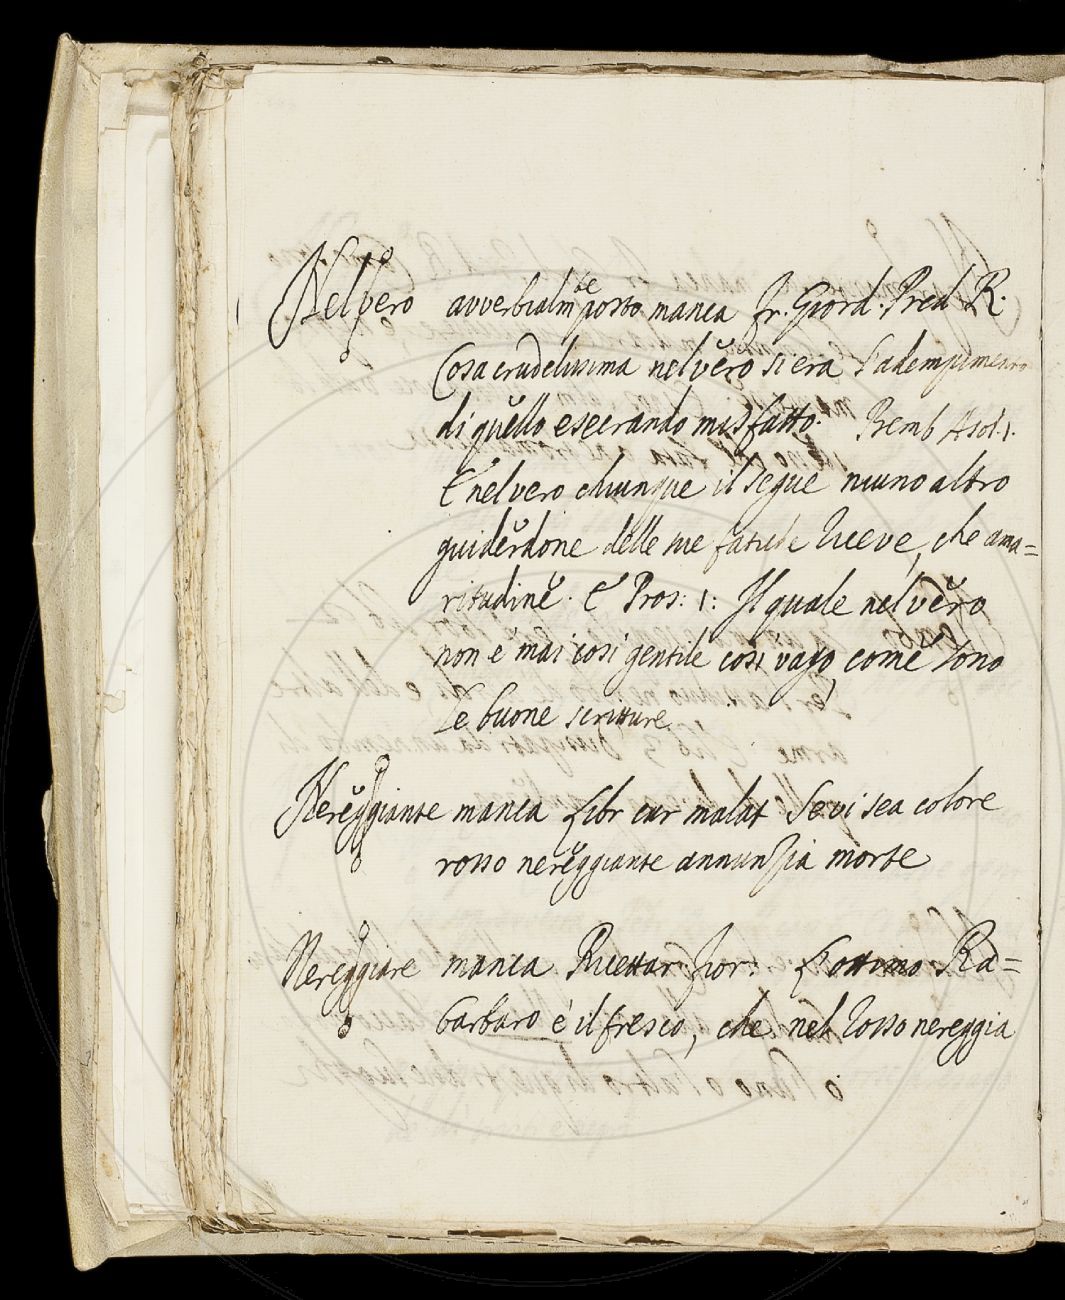 Nel vero avverbialm.te posto manca fr. Giord. Pred R.
Cosa crudelissima nel vero si era l'adempimento
di quello esecrando misfatto. Bemb Asol. 1.
E nel vero chiunque il segue niuno altro
guiderdone delle sue fatiche riceve, che ama=
ritudine. E Pros: 1: Il quale nel vero
non e mai cosi gentile cosi vago, come sono
le buone scritture
Nereggiante manca libr cur malat Se vi sea colore
rosso nereggiante annunzia morte
Nereggiare manca Ricettar fior: l'ottimo Ra=
barbaro è il fresco, che nel rosso nereggia